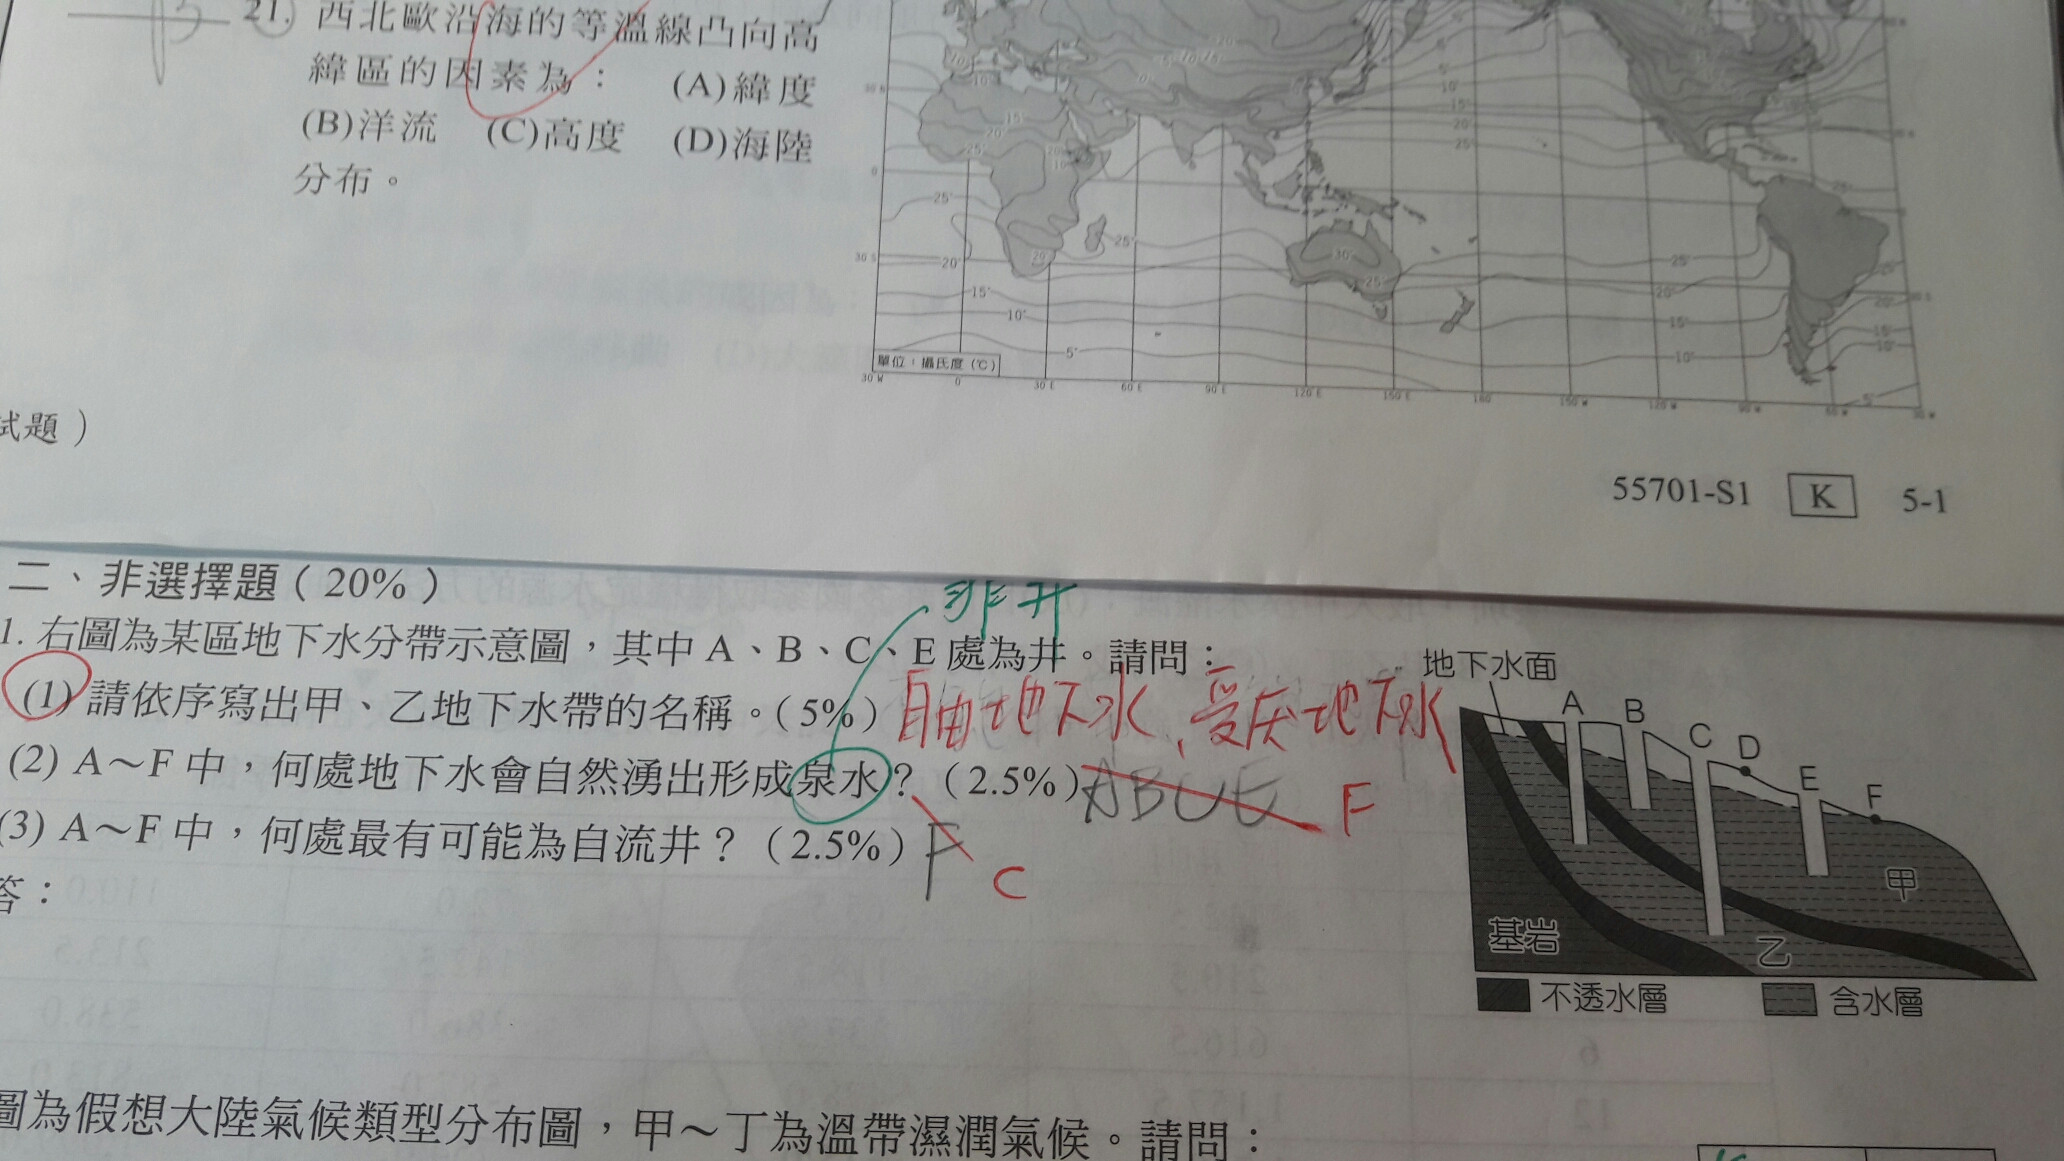 21. 西北歐沿海的等溫線凸向高
緯區的因素為： (A)緯度
(B)洋流 (C)高度 (D)海陸
分布。
試題）
單位：攝氏度 (℃)
30 W 0 30 E 60 E 90 E 120 E 150 E 180 150 W 120 W 90 W 60 W
55701-S1 K 5-1
二、非選擇題（20%）
非井
1. 右圖為某區地下水分帶示意圖，其中 A、B、C、E 處為井。請問：
(1) 請依序寫出甲、乙地下水帶的名稱。（5%）自由地下水、受压地下水
(2) A～F 中，何處地下水會自然湧出形成泉水？（2.5%）ABCE F
(3) A～F 中，何處最有可能為自流井？（2.5%）F C
答：
地下水面
A B C D E F
甲
基岩 乙
不透水層 含水層
圖為假想大陸氣候類型分布圖，甲～丁為溫帶濕潤氣候。請問：